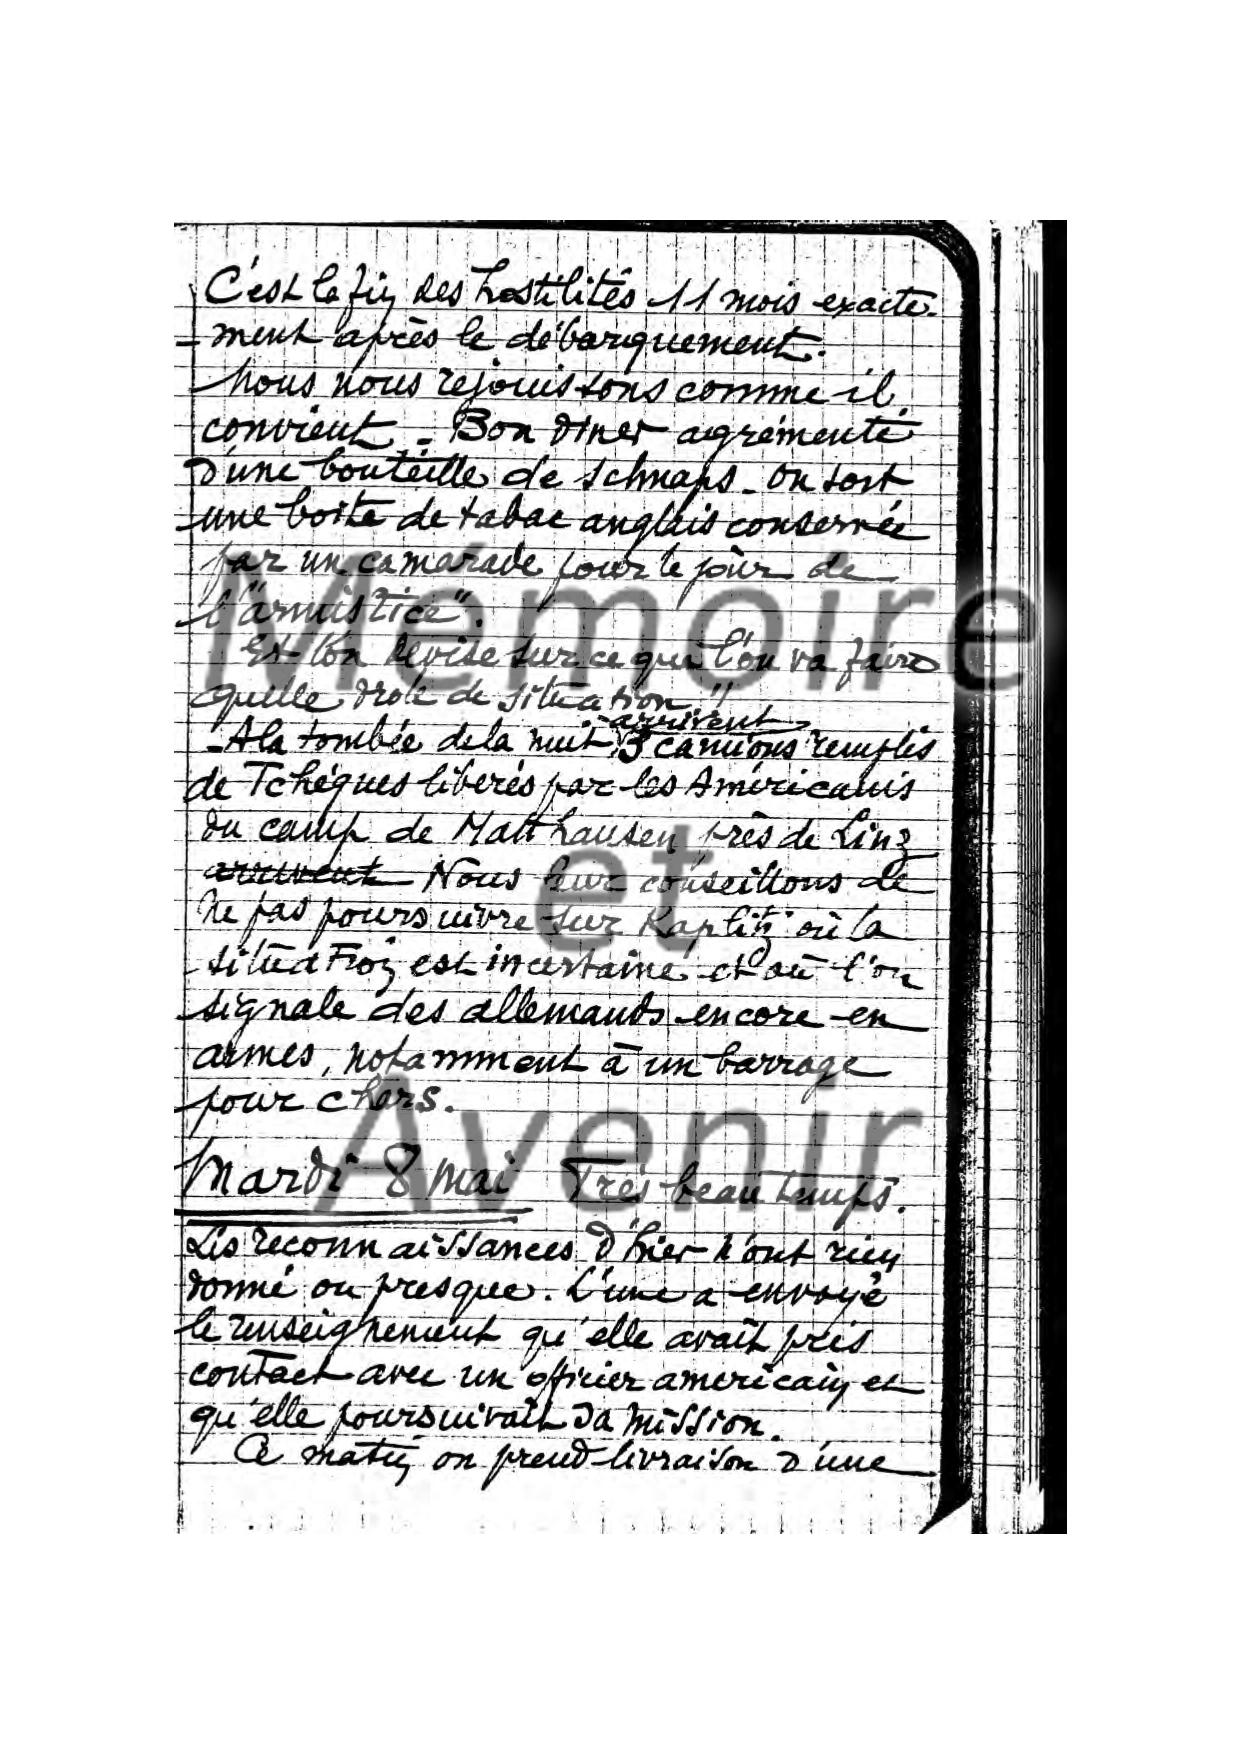 C'est la fin des hostilités 11 mois exacte-
-ment après le débarquement.
Nous nous rejouissons comme il
convient - Bon diner agrémenté
d'une bouteille de schnaps - on sort
une boite de tabac anglais conservée
par un camarade pour le jour de
l'"armistice".
Et l'on devise sur ce que l'on va faire
quelle drole de situation"
arrivent
-A la tombée de la nuit 3 camions remplis
de Tchéques libérés par les Américains
du camp de Matthausen près de Linz
arrivent Nous leur conseillons de
ne pas poursuivre sur Kaplitz où la
situation est incertaine et où l'on
signale des allemands encore en
armes, notamment à un barrage
pour chars.
Mardi 8 mai Très beau temps.
Les reconnaissances d'hier n'ont rien
donné ou presque. L'une a envoyé
le renseignement qu'elle avait pris
contact avec un officier americain et
qu'elle poursuivait sa mission.
Ce matin on prend livraison d'une
Memoire
et
Avenir